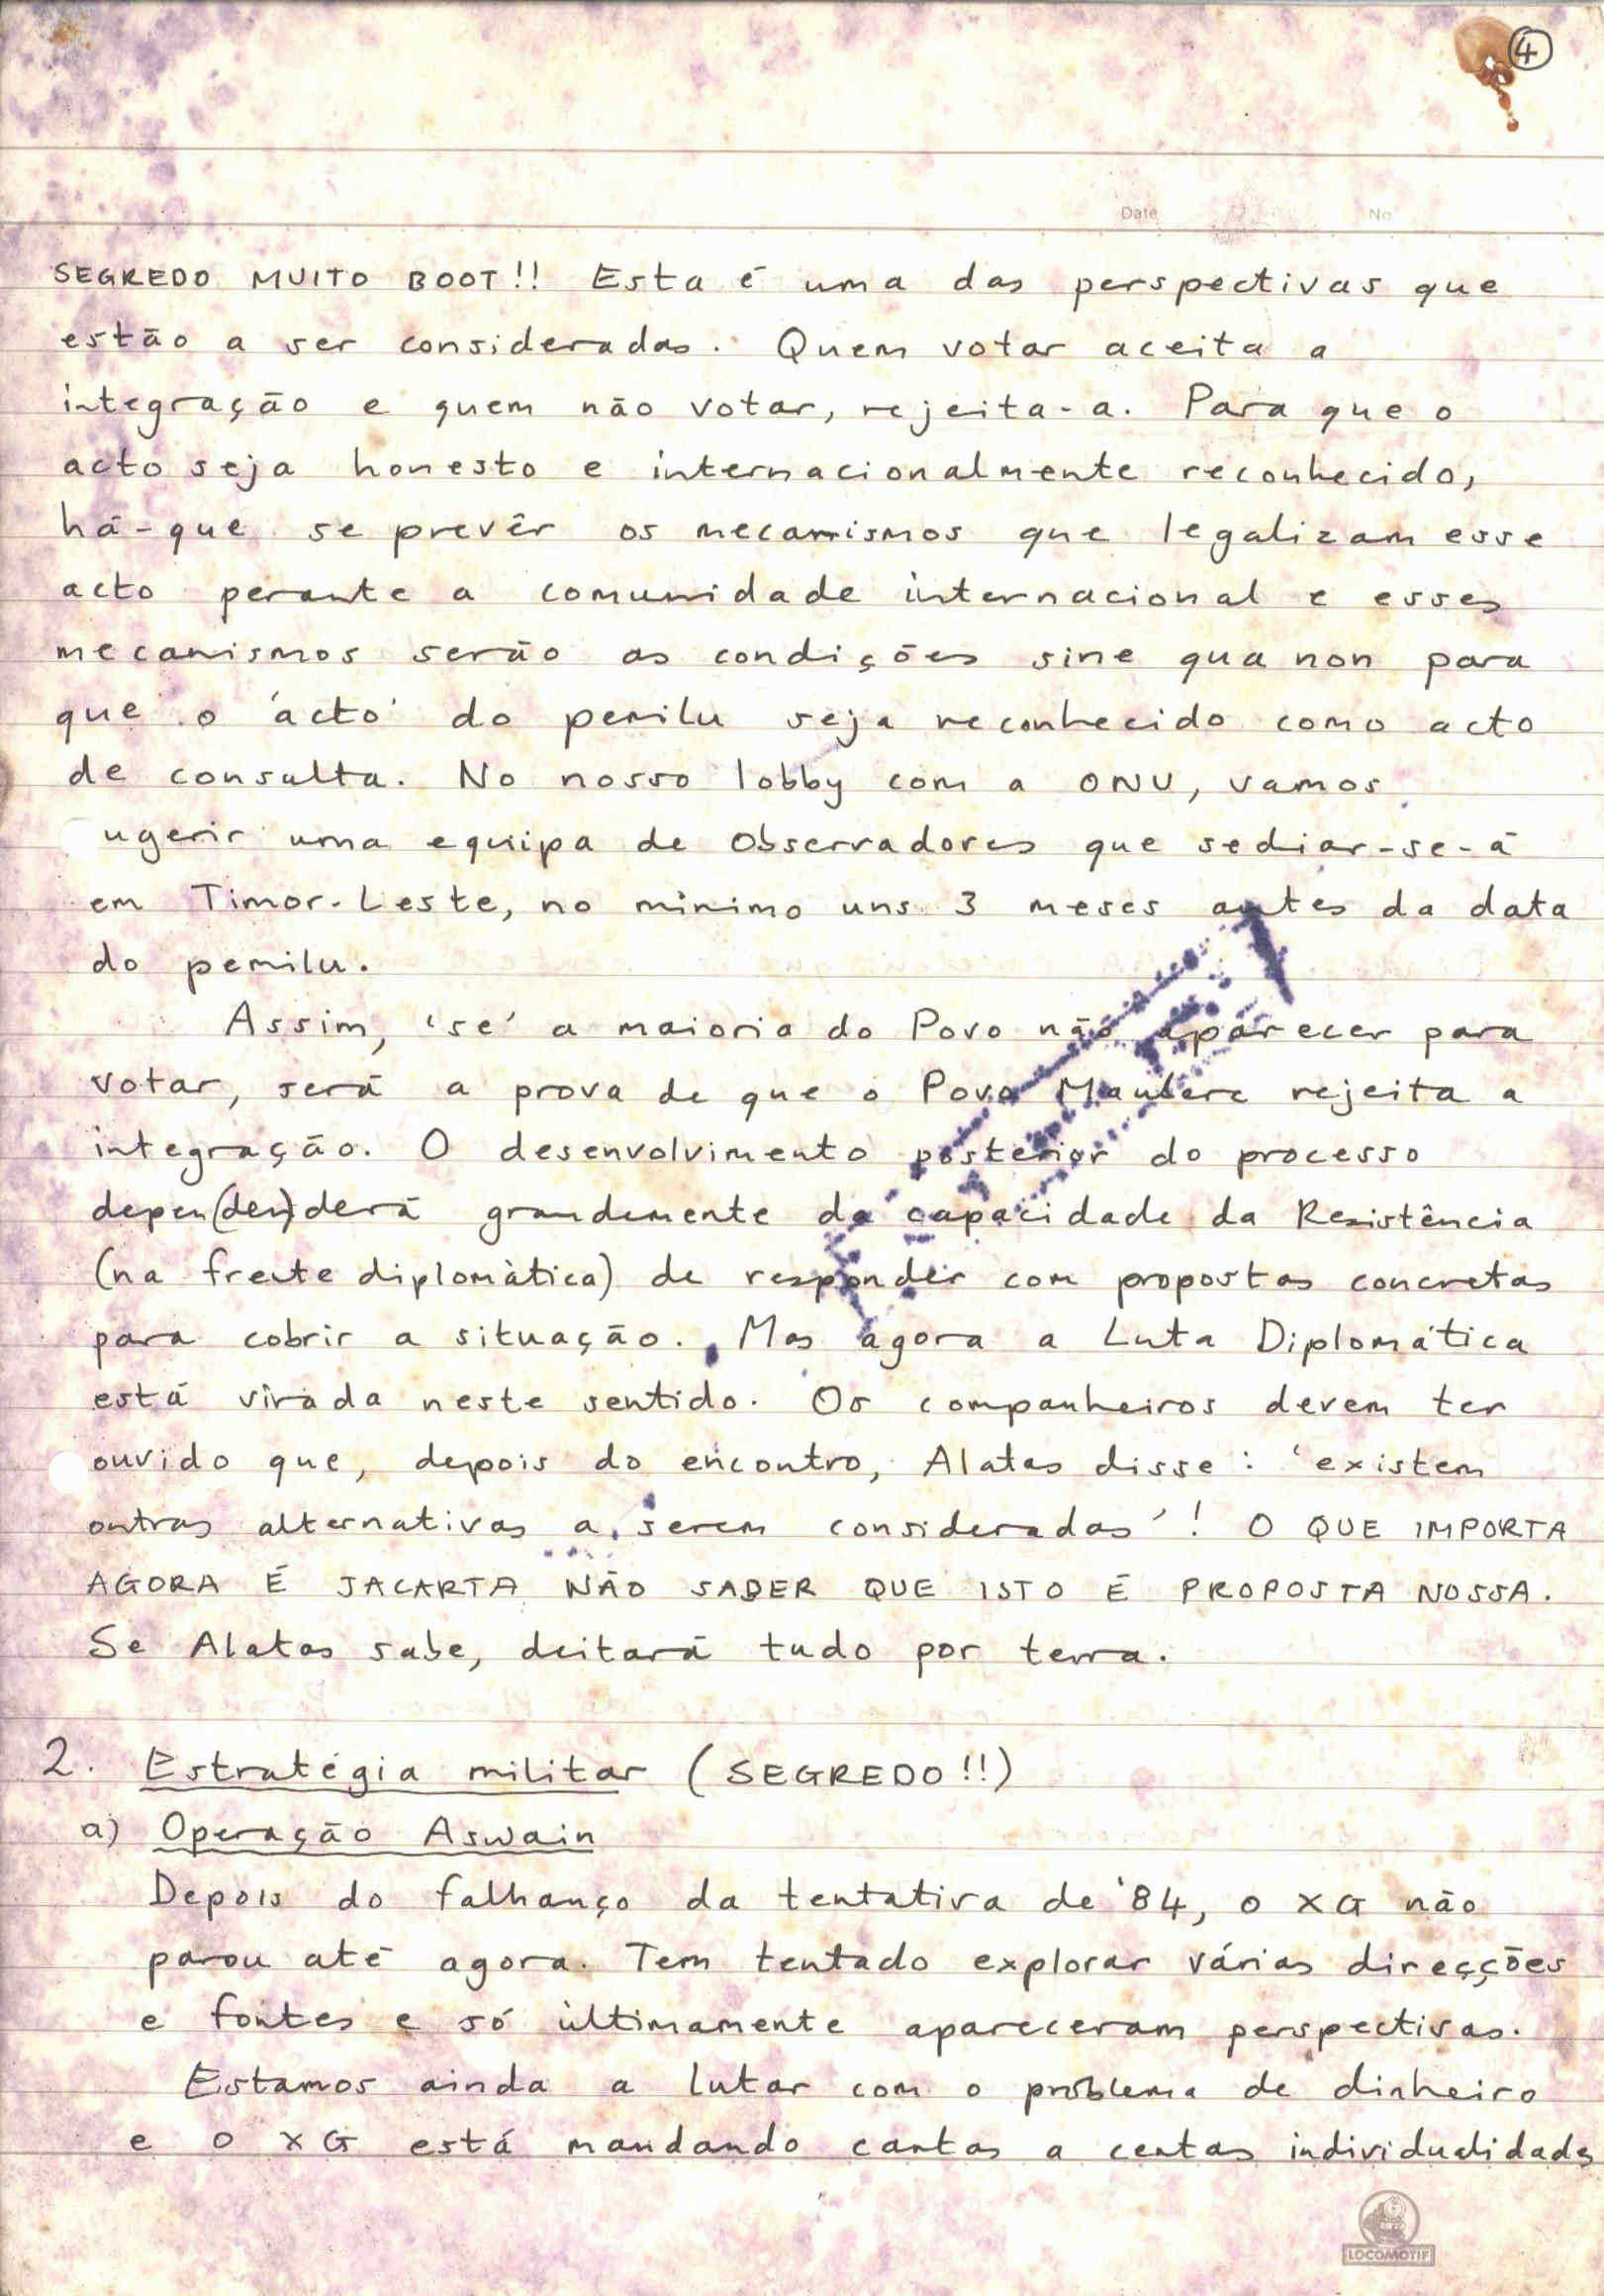 4
Date No
SEGREDO MUITO BOOT!! Esta é uma das perspectivas que
estão a ser consideradas. Quem votar aceita a
integração e quem não votar, rejeita-a. Para que o
acto seja honesto e internacionalmente reconhecido,
há-que se prevêr os mecanismos que legalizam esse
acto perante a comunidade internacional e esses
mecanismos serão as condições sine qua non para
que o 'acto' do pemilu seja reconhecido como acto
de consulta. No nosso lobby com a ONU, vamos
ugerir uma equipa de Observadores que sediar-se-á
em Timor-Leste, no mínimo uns 3 meses antes da data
do pemilu.
Assim, 'se' a maioria do Povo não aparecer para
votar, será a prova de que o Povo Maubere rejeita a
integração. O desenvolvimento posterior do processo
depen(den)derá grandemente da capacidade da Resistência
(na frente diplomática) de responder com propostas concretas
para cobrir a situação. Mas agora a Luta Diplomática
está virada neste sentido. Os companheiros devem ter
ouvido que, depois do encontro, Alatas disse: 'existem
outras alternativas a serem consideradas'! O QUE IMPORTA
AGORA É JACARTA NÃO SABER QUE ISTO É PROPOSTA NOSSA.
Se Alatas sabe, deitará tudo por terra.
2. Estratégia militar (SEGREDO!!)
a) Operação Aswain
Depois do falhanço da tentativa de '84, o XG não
parou até agora. Tem tentado explorar várias direcções
e fontes e só ùltimamente apareceram perspectivas.
Estamos ainda a lutar com o problema de dinheiro
e o XG está mandando cartas a certas individualidades
LOCOMOTIF